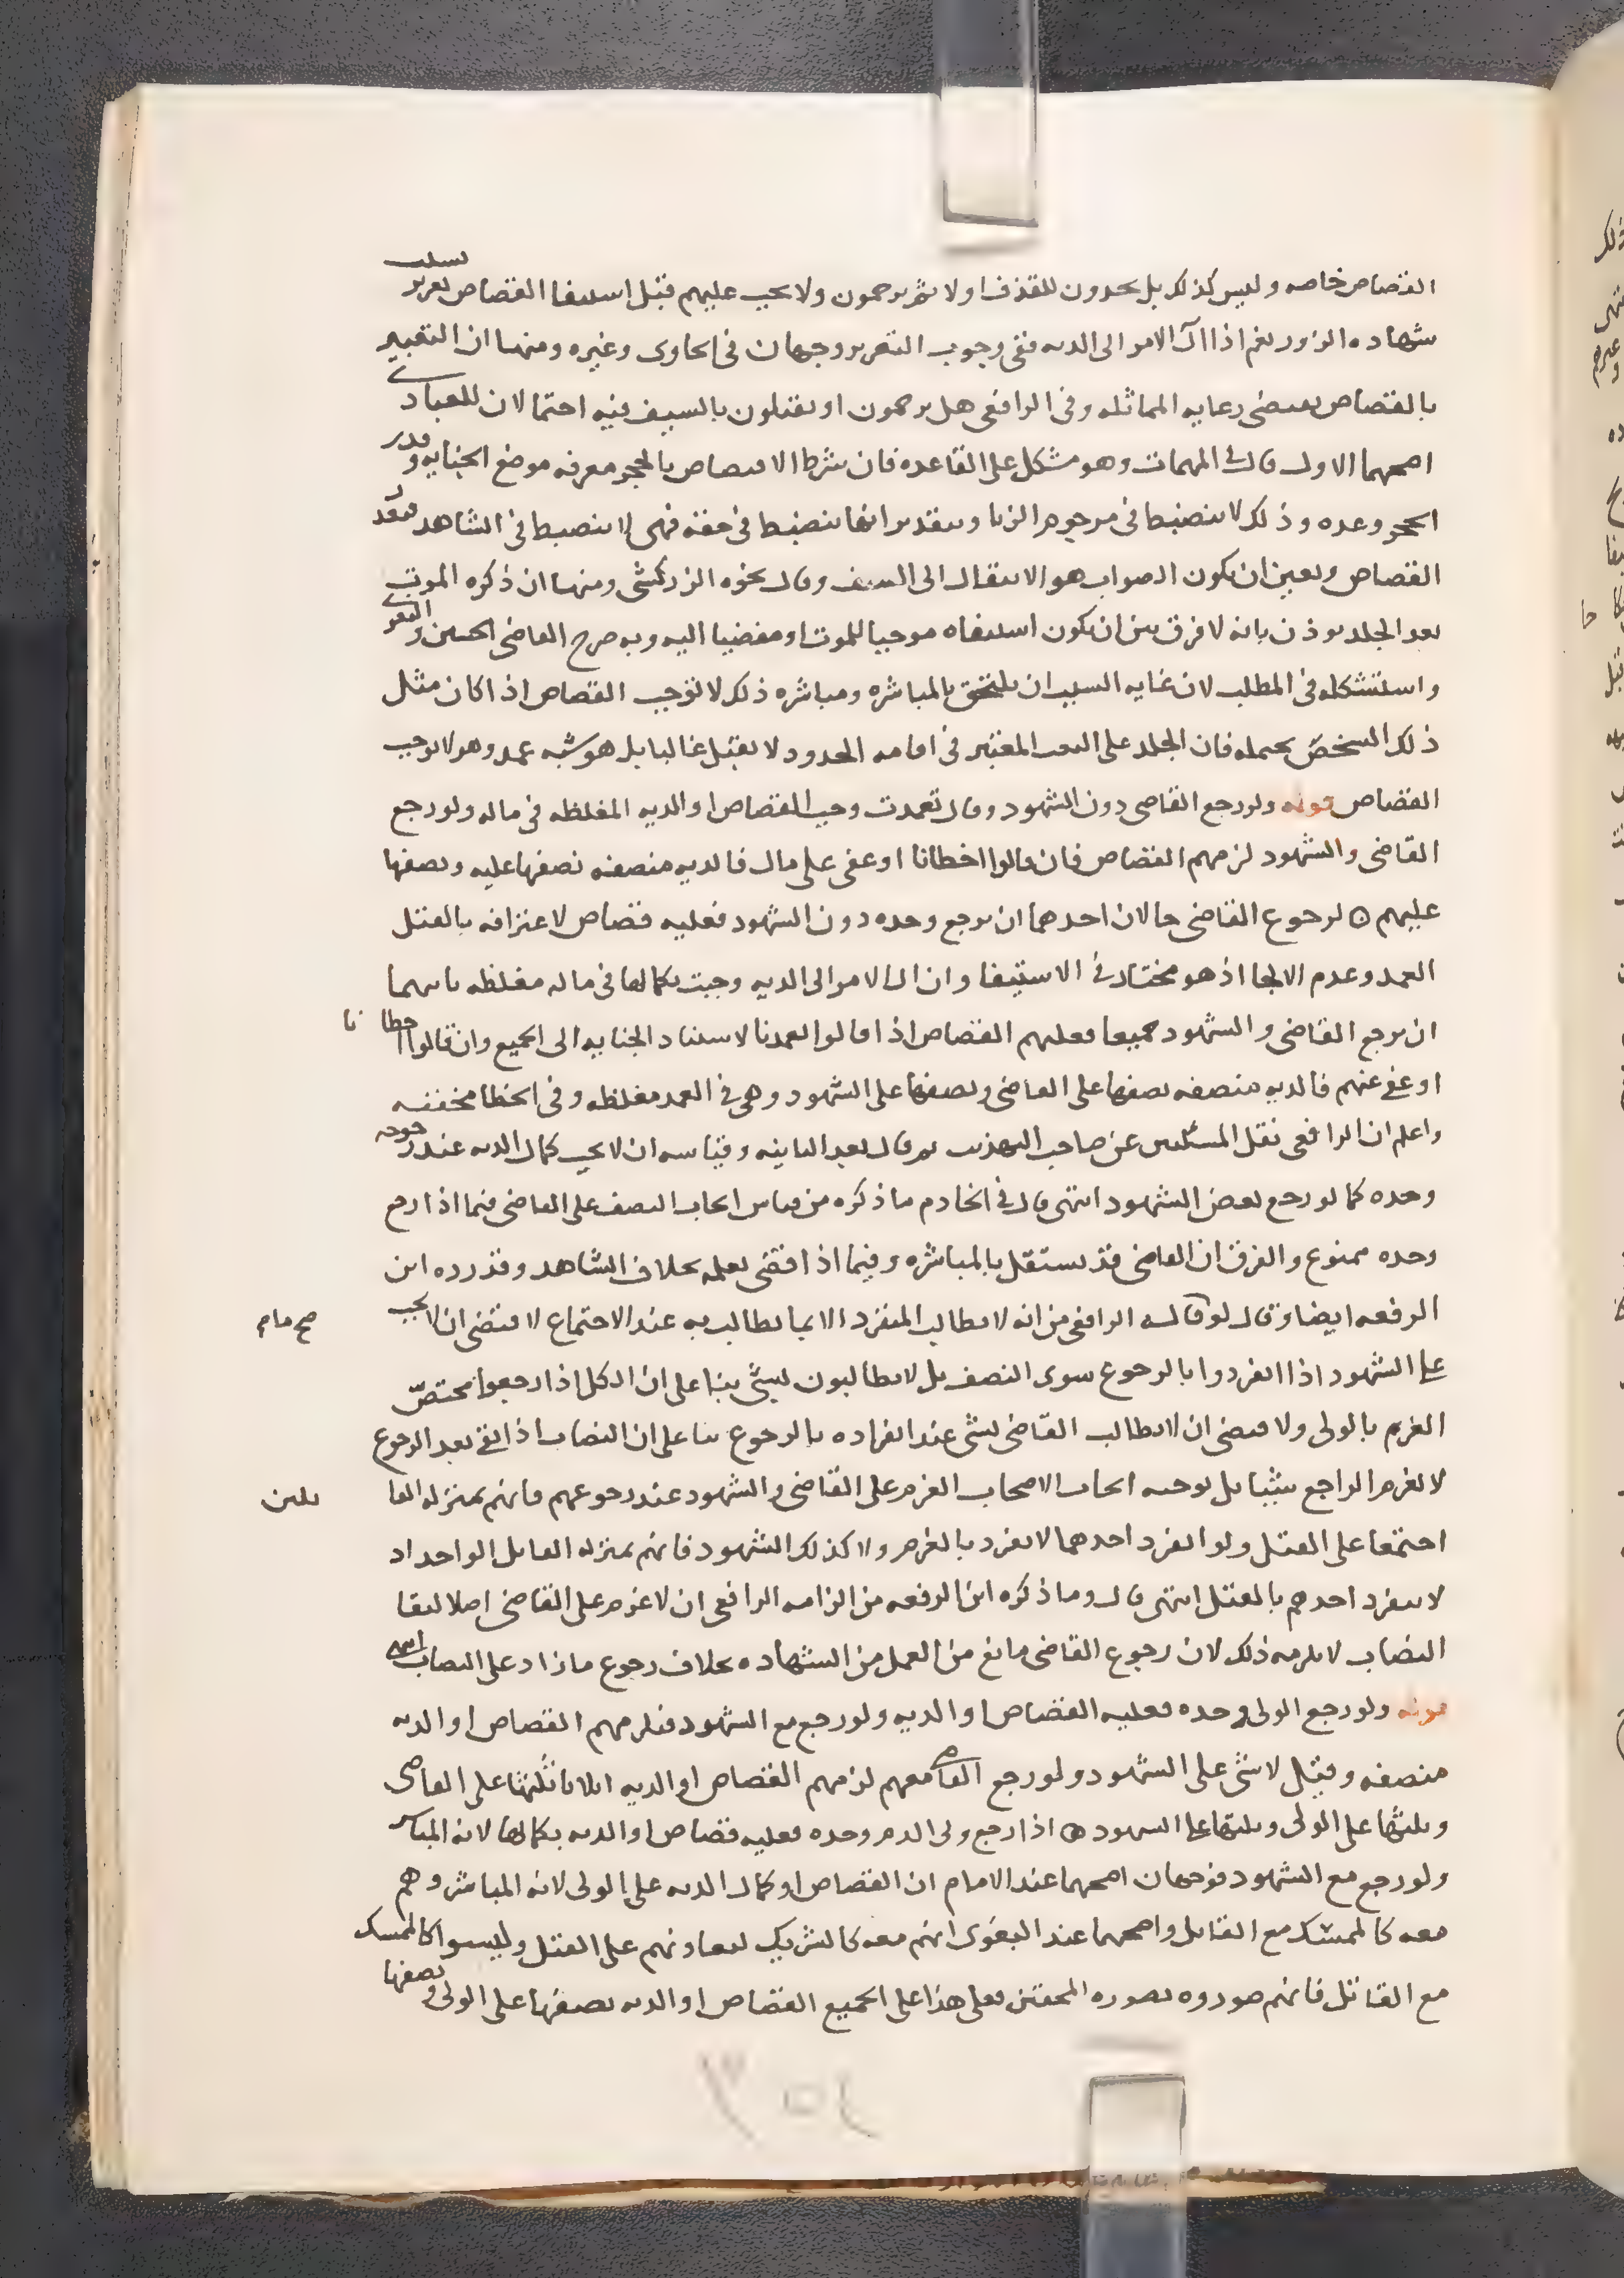 القصاص خاصه وليس كذلك بل يحدون للقذف اولا ثم يرجمون ولا يجب عليهم قبل استيفا القصاص تعزير بسبب
شهاده الزور نعم اذا ال الامر الى الديه ففى وجوب التعزير وجهان فى الحاوى وغيره ومنها ان التعبير
بالقصاص يقتضى رعايه المماثله وفى الرافعى هل يرجمون او يقتلون بالسيف فيه احتمالان للعبادى
اصحهما الاول قال فى المهمات وهو مشكل على القاعده فان شرط الاقتصاص بالحجر معرفه موضع الجنايه وقدر
الحجر وعدده وذلك لا ينضبط فى مرجوم الزنا وبتقدير انها تنضبط فى حقه فهى لا تنضبط فى الشاهد فتعذر
القصاص وتعين ان يكون الصواب هو الانتقال الى السيف وقال نحوه الزركشى ومنها ان ذكره الموت
بعد الجلد يوذن بانه لا فرق بين ان يكون استيفاه موجبا للموت او مفضيا اليه وبه صرح القاضى الحسين والبغوى
واستشكله فى المطلب لان غايه السبب ان يلتحق بالمباشره ومباشره ذلك لا توجب القصاص اذا كان مثل
ذلك الشخص يحمله فان الجلد على النعت المعتبر فى اقامه الحدود لا يقتل غالبا بل هو شبه عمد وهو لا يوجب
القصاص قوله ولو رجع القاضى دون الشهود وقال تعمدت وجب القصاص او الديه المغلظه فى ماله ولو رجع
القاضى والشهود لزمهم القصاص فان قالوا اخطانا او عفى على مال فالديه منصفه نصفها عليه ونصفها
عليهم ه لرجوع القاضى حالان احدهما ان يرجع وحده دون الشهود فعليه قصاص لاعترافه بالقتل
العمد وعدم الالجا اذ هو مختار فى الاستيفا وان ال الامر الى الديه وجبت بكمالها فى ماله مغلظه ثانيهما
ان يرجع القاضى والشهود جميعا فعليهم القصاص اذا قالوا تعمدنا لاستناد الجنايه الى الجميع وان قالوا اخطانا
او عفى عنهم فالديه منصفه نصفها على القاضى ونصفها على الشهود وهى فى العمد مغلظه وفى الخطا مخففه
واعلم ان الرافعى نقل المسئلتين عن صاحب التهذيب ثم قال بعد الثانيه وقياسه ان لا يجب كمال الديه عند رجوعه
وحده كما لو رجع بعض الشهود انتهى قال فى الخادم ما ذكره من قياس ايجاب النصف على القاضى فيما اذا رجع
وحده ممنوع والفرق ان القاضى قد يستقل بالمباشره وفيما اذا قضى بعلمه بخلاف الشاهد وقد رده ابن
الرفعه ايضا وقال لو قال الرافعى من انه لا يطالب المنفرد الا بما يطالب به عند الاجتماع لاقتضى ان لا يجب
على الشهود اذا انفردوا بالرجوع سوى النصف بل لا يطالبون بشى بنا على ان الكل اذا رجعوا يختص
الغرم بالولى ولاقتضى ان لا يطالب القاضى بشى عند انفراده بالرجوع بنا على ان النصاب اذا بقى بعد الرجوع
لا يغرم الراجع شيئا بل توجيه ايجاب الاصحاب الغرم على القاضى والشهود عند رجوعهم فانهم بمنزله القاتلين
اجتمعا على القتل ولو انفرد احدهما لانفرد بالغرم ولا كذلك الشهود فانهم بمنزله القاتل الواحد اذ
لا ينفرد احدهم بالقتل انتهى قال وما ذكره ابن الرفعه من الزامه الرافعى ان لا غرم على القاضى اصلا لبقا
النصاب لا يلزمه ذلك لان رجوع القاضى مانع من العمل من الشهاده بخلاف رجوع ما زاد على النصاب انتهى
قوله ولو رجع الولى وحده فعليه القصاص او الديه ولو رجع مع الشهود فيلزمهم القصاص او الديه
منصفه وقيل لا شى على الشهود ولو رجع القاضى معهم لزمهم القصاص او الديه اثلاثا ثلثها على القاضى
وثلثها على الولى وثلثها على الشهود ه اذا رجع ولى الدم وحده فعليه قصاص او الديه بكمالها لانه المباشر
ولو رجع مع الشهود فوجهان اصحهما عند الامام ان القصاص او كمال الديه على الولى لانه المباشر وهم
معه كالممسك مع القاتل واصحهما عند البغوى انهم معه كالشريك لتعاونهم على القتل وليسوا كالممسك
مع القاتل فانهم صوروه بصوره المحقين فعلى هذا على الجميع القصاص او الديه نصفها على الولى ونصفها